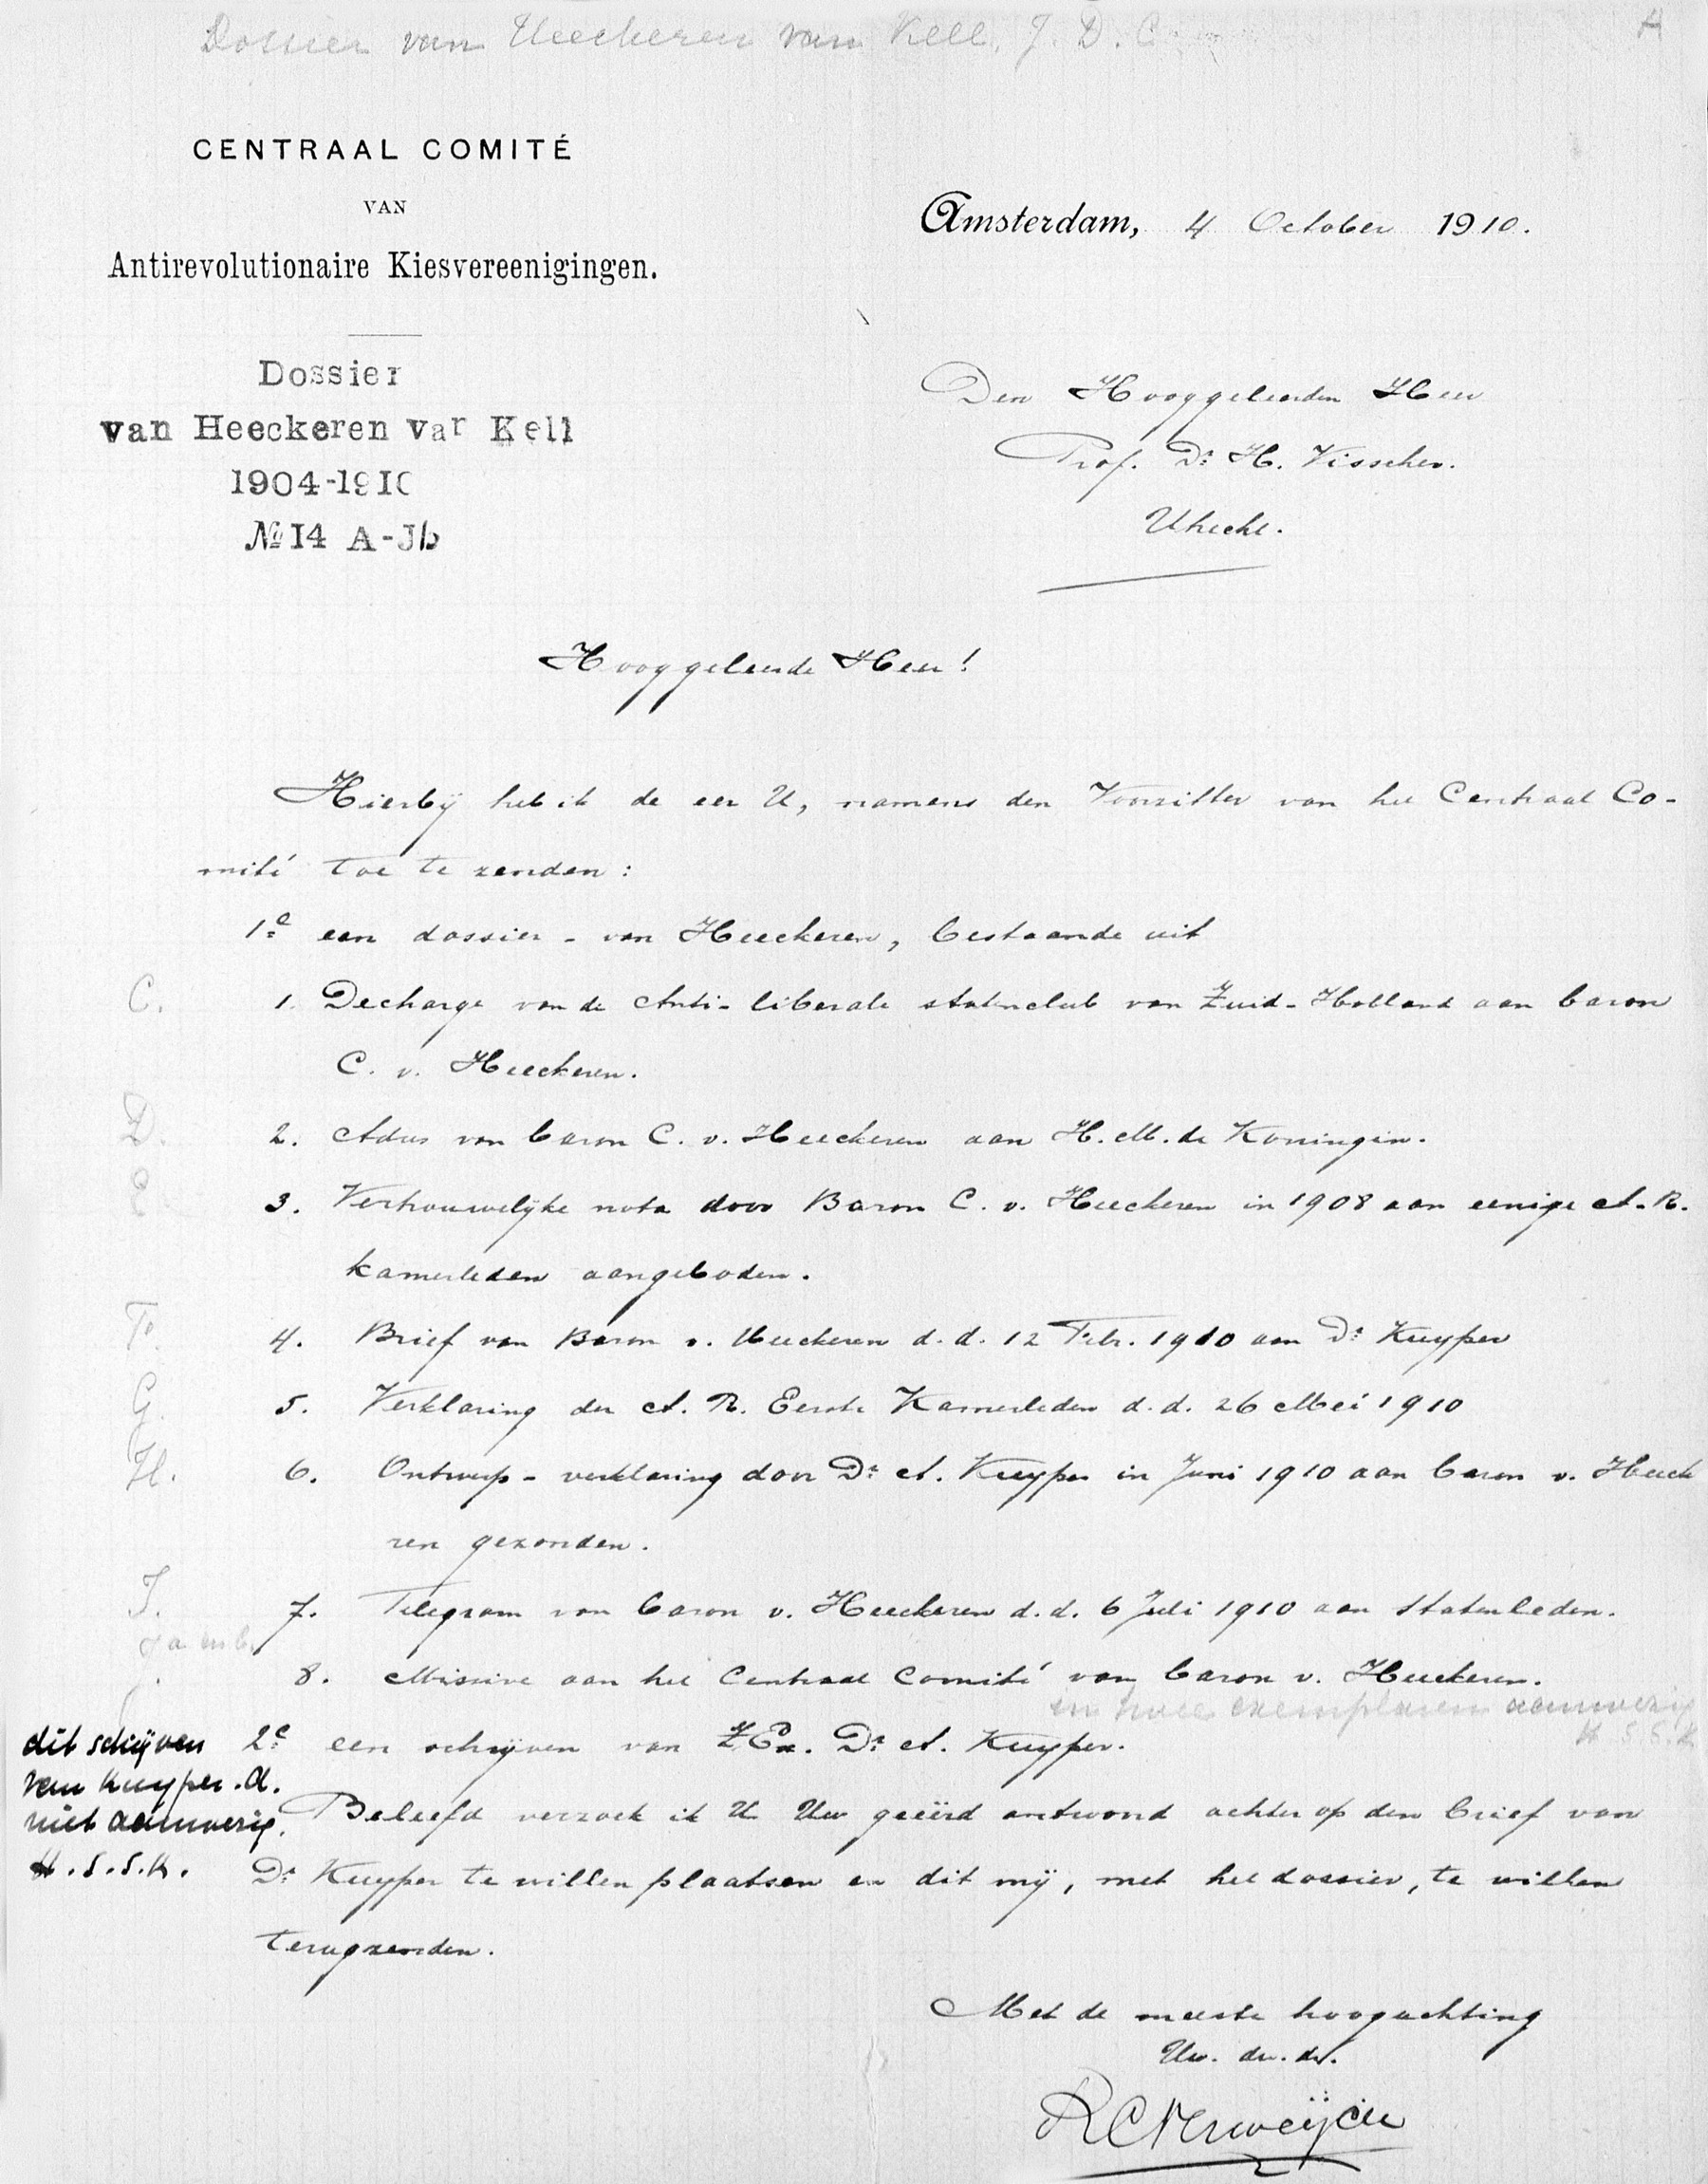 Dossier van Heeckeren van Kell, J. D. C.
A
CENTRAAL COMITÉ
VAN
Antirevolutionaire Kiesvereenigingen.
Amsterdam, 4 October 1910.
Dossier
van Heeckeren van Kell
1904-1910
№ 14 A-Jb
Den Hooggeleerden Heer
Prof. Dr. H. Visscher.
Utrecht.
Hooggeleerde Heer!
Hierbij heb ik de eer U, namens den Voorzitter van het Centraal Co-
mité toe te zenden:
1e een dossier - van Heeckeren, bestaande uit
C. 1. Decharge van de Anti-liberale statenclub van Zuid-Holland aan baron
C. v. Heeckeren.
D. 2. Adres van baron C. v. Heeckeren aan H.M. de Koningin.
E 3. Vertrouwelijke nota door Baron C. v. Heeckeren in 1908 aan eenige A.R.
kamerleden aangeboden.
F. 4. Brief van Baron v. Heeckeren d.d. 12 Febr. 1910 aan Dr. Kuyper
G. 5. Verklaring der A. R. Eerste Kamerleden d.d. 26 Mei 1910
H. 6. Ontwerp-verklaring door Dr. A. Kuyper in Juni 1910 aan baron v. Heecke
ren gezonden.
I. 7. Telegram van baron v. Heeckeren d.d. 6 Juli 1910 aan Statenleden.
J a en b. 8. Missive aan het Centraal Comité van baron v. Heeckeren.
in twee exemplaren aanwezig
H.S.S.K.
2e een schrijven van Z.Ex. Dr. A. Kuyper.
dit schrijven
van Kuyper.d.
niet aanwezig.
H.S.S.K.
Beleefd verzoek ik U Uw geëerd antwoord achter op den brief van
Dr. Kuyper te willen plaatsen en dit mij, met het dossier, te willen
terugzenden.
Met de meeste hoogachting
Uw. dw. dr.
R C Verweijcke